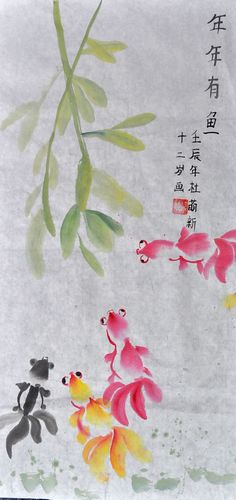 年年有鱼
壬辰年杜萌新
十二岁画